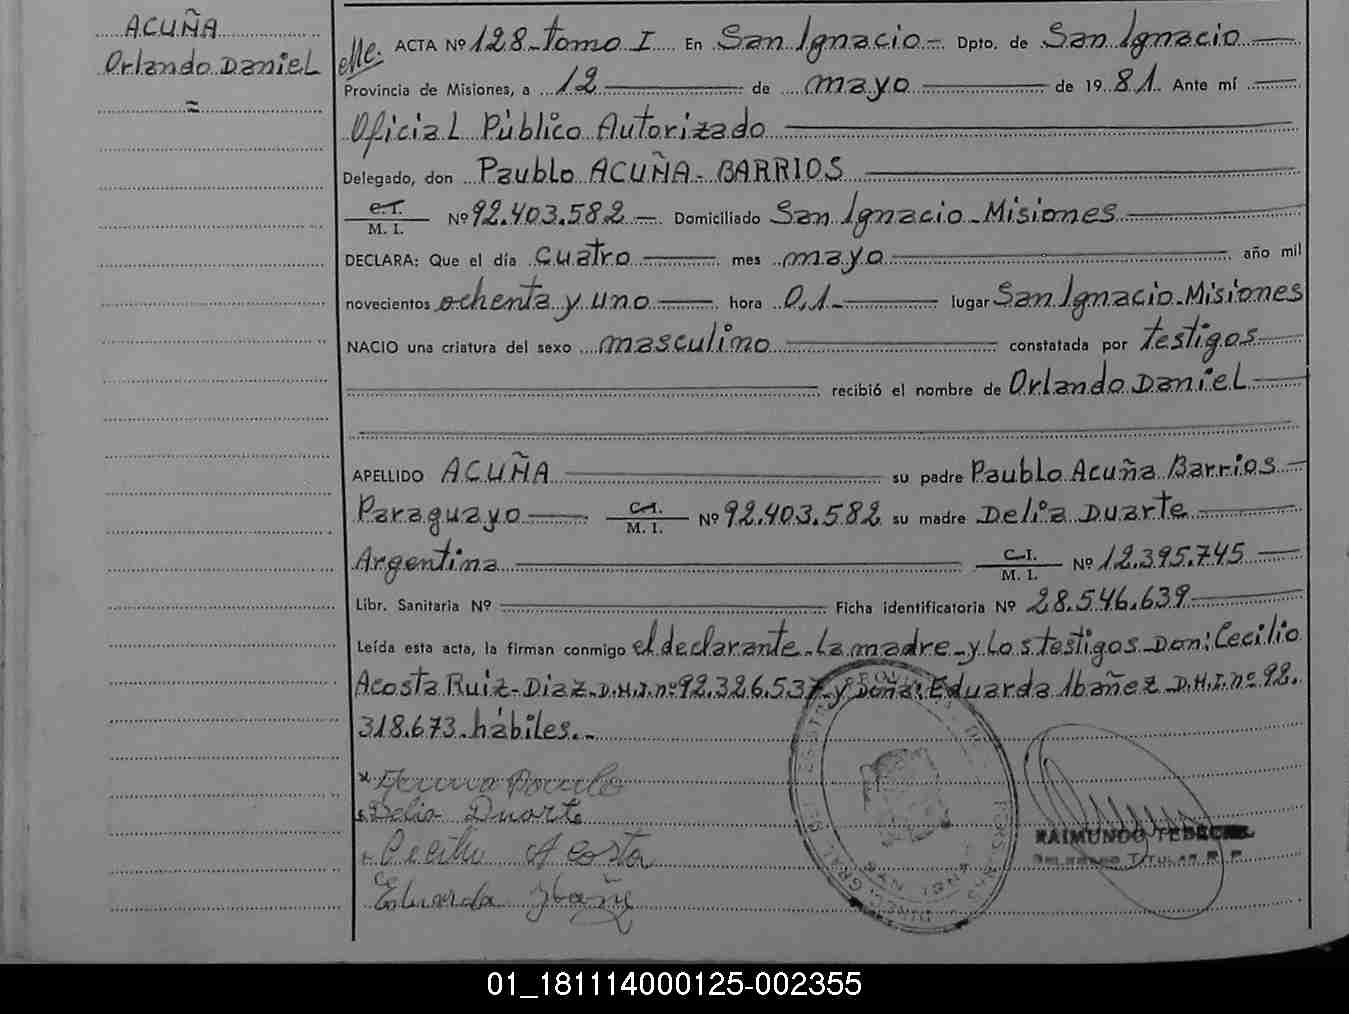 ACUÑA
Orlando Daniel
ACTA Nº 128-Tomo I En San Ignacio- Dpto. de San Ignacio
Provincia de Misiones, a 12 de mayo de 1981. Ante mí
Oficial Público Autorizado
Delegado, don Paublo ACUÑA-BARRIOS
C.I.
M. I. Nº 92.403.582 Domiciliado San Ignacio-Misiones
DECLARA: Que el día cuatro mes mayo año mil
novecientos ochenta y uno hora 0,1 lugar San Ignacio-Misiones
NACIO una criatura del sexo masculino constatada por testigos
recibió el nombre de Orlando Daniel
APELLIDO ACUÑA su padre Paublo Acuña Barrios
Paraguayo C.I. M. I. Nº 92.403.582 su madre Delia Duarte
Argentina C.I. M. I. Nº 12.395.745
Libr. Sanitaria Nº Ficha identificatoria Nº 28.546.639
Leída esta acta, la firman conmigo el declarante-La madre-y Los testigos-Don: Cecilio
Acosta Ruiz-Diaz-D.N.I.nº 92.326.537-y Doña: Eduarda Ibañez-D.N.I.nº 92.
318.673-hábiles.-
Delia Duarte
Cecilio Acosta
Eduarda Ibañe
RAIMUNDO
TITULAR R.P.
01_181114000125-002355